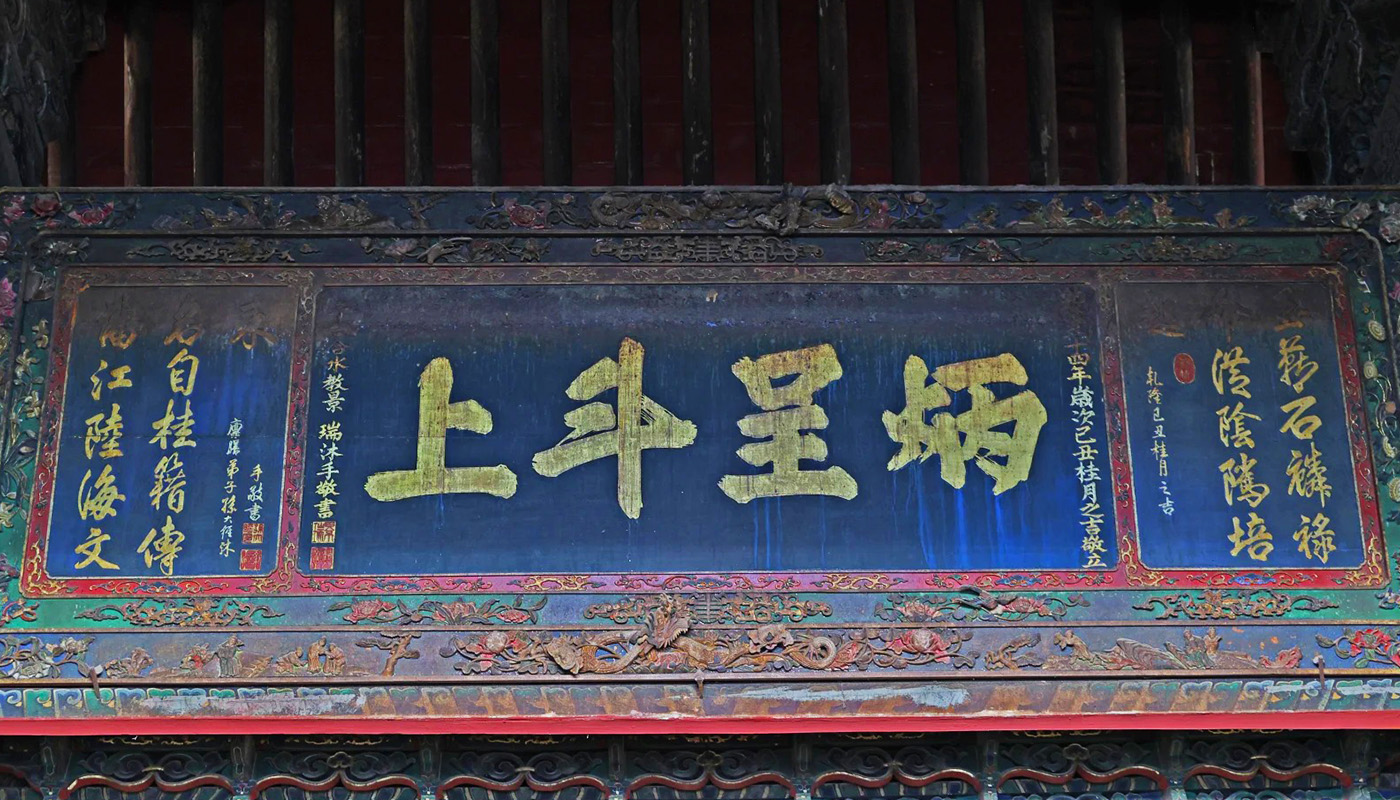 石麟祿
陰隲培
乾隆己丑桂月之吉
十四年歲次己丑桂月之吉敬立
炳呈斗上
教景瑞沐手敬書
手敬書
廩膳弟子孫大經沐
自桂籍傳
江陸海文